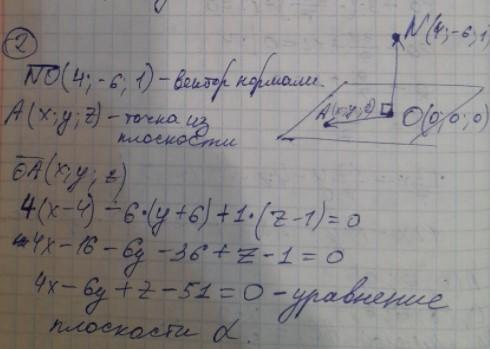 2
N(4; -6; 1
NO(4; -6; 1) - вектор нормали.
A(x; y; z) - точка из
плоскости
A(x; y; z)
O(0; 0; 0)
OA(x; y; z)
4(x-4) - 6·(y+6) + 1·(z-1) = 0
4x - 16 - 6y - 36 + z - 1 = 0
4x - 6y + z - 51 = 0 - уравнение
плоскости α.